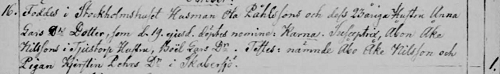 16. Föddes i Stockholmshuset Husman Ola Påhlssons och dess 23åriga Hustru Anna
Lars Dr Dotter, som d. 19 ejusd. döptes nomine: Karna. Susceptrix, Åbon Åke
Nilssons i Tjustorp Hustru, Boel Lars Dr. Testes: nämnde Åbo Åke Nilsson och
Pigan Kjerstin Pehrs Dr i Skabersjö. 1.